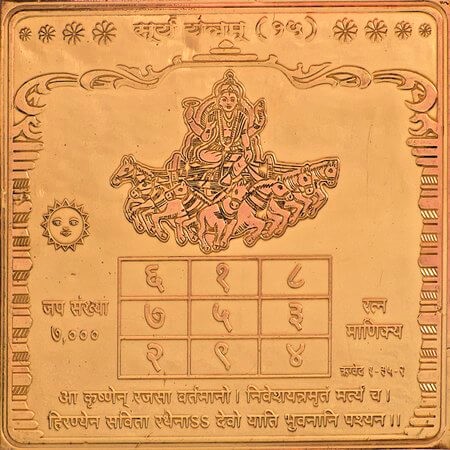 सूर्य यंत्रम् (१५)
६ १ ८
७ ५ ३
२ ९ ४
जप संख्या
७,०००
रत्न
माणिक्य
ऋग्वेद १-३५-२
आ कृष्णेन् रजसा वर्तमानो। निवेशयन्नमृतं मर्त्यं च।
हिरण्येन सविता रथेनाSS देवो याति भुवनानि पश्यन।।